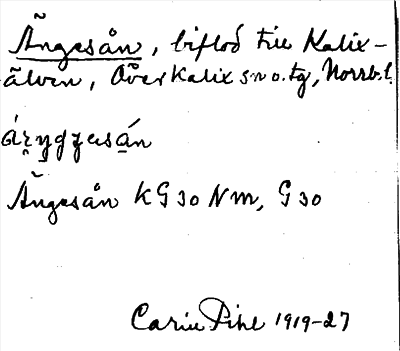 Ängesån, biflod till Kalix-
älven, Överkalix sn o. tg, Norrb. l.
Ängesån KG 30 NM, G 30
Carin Pihl 1919-27